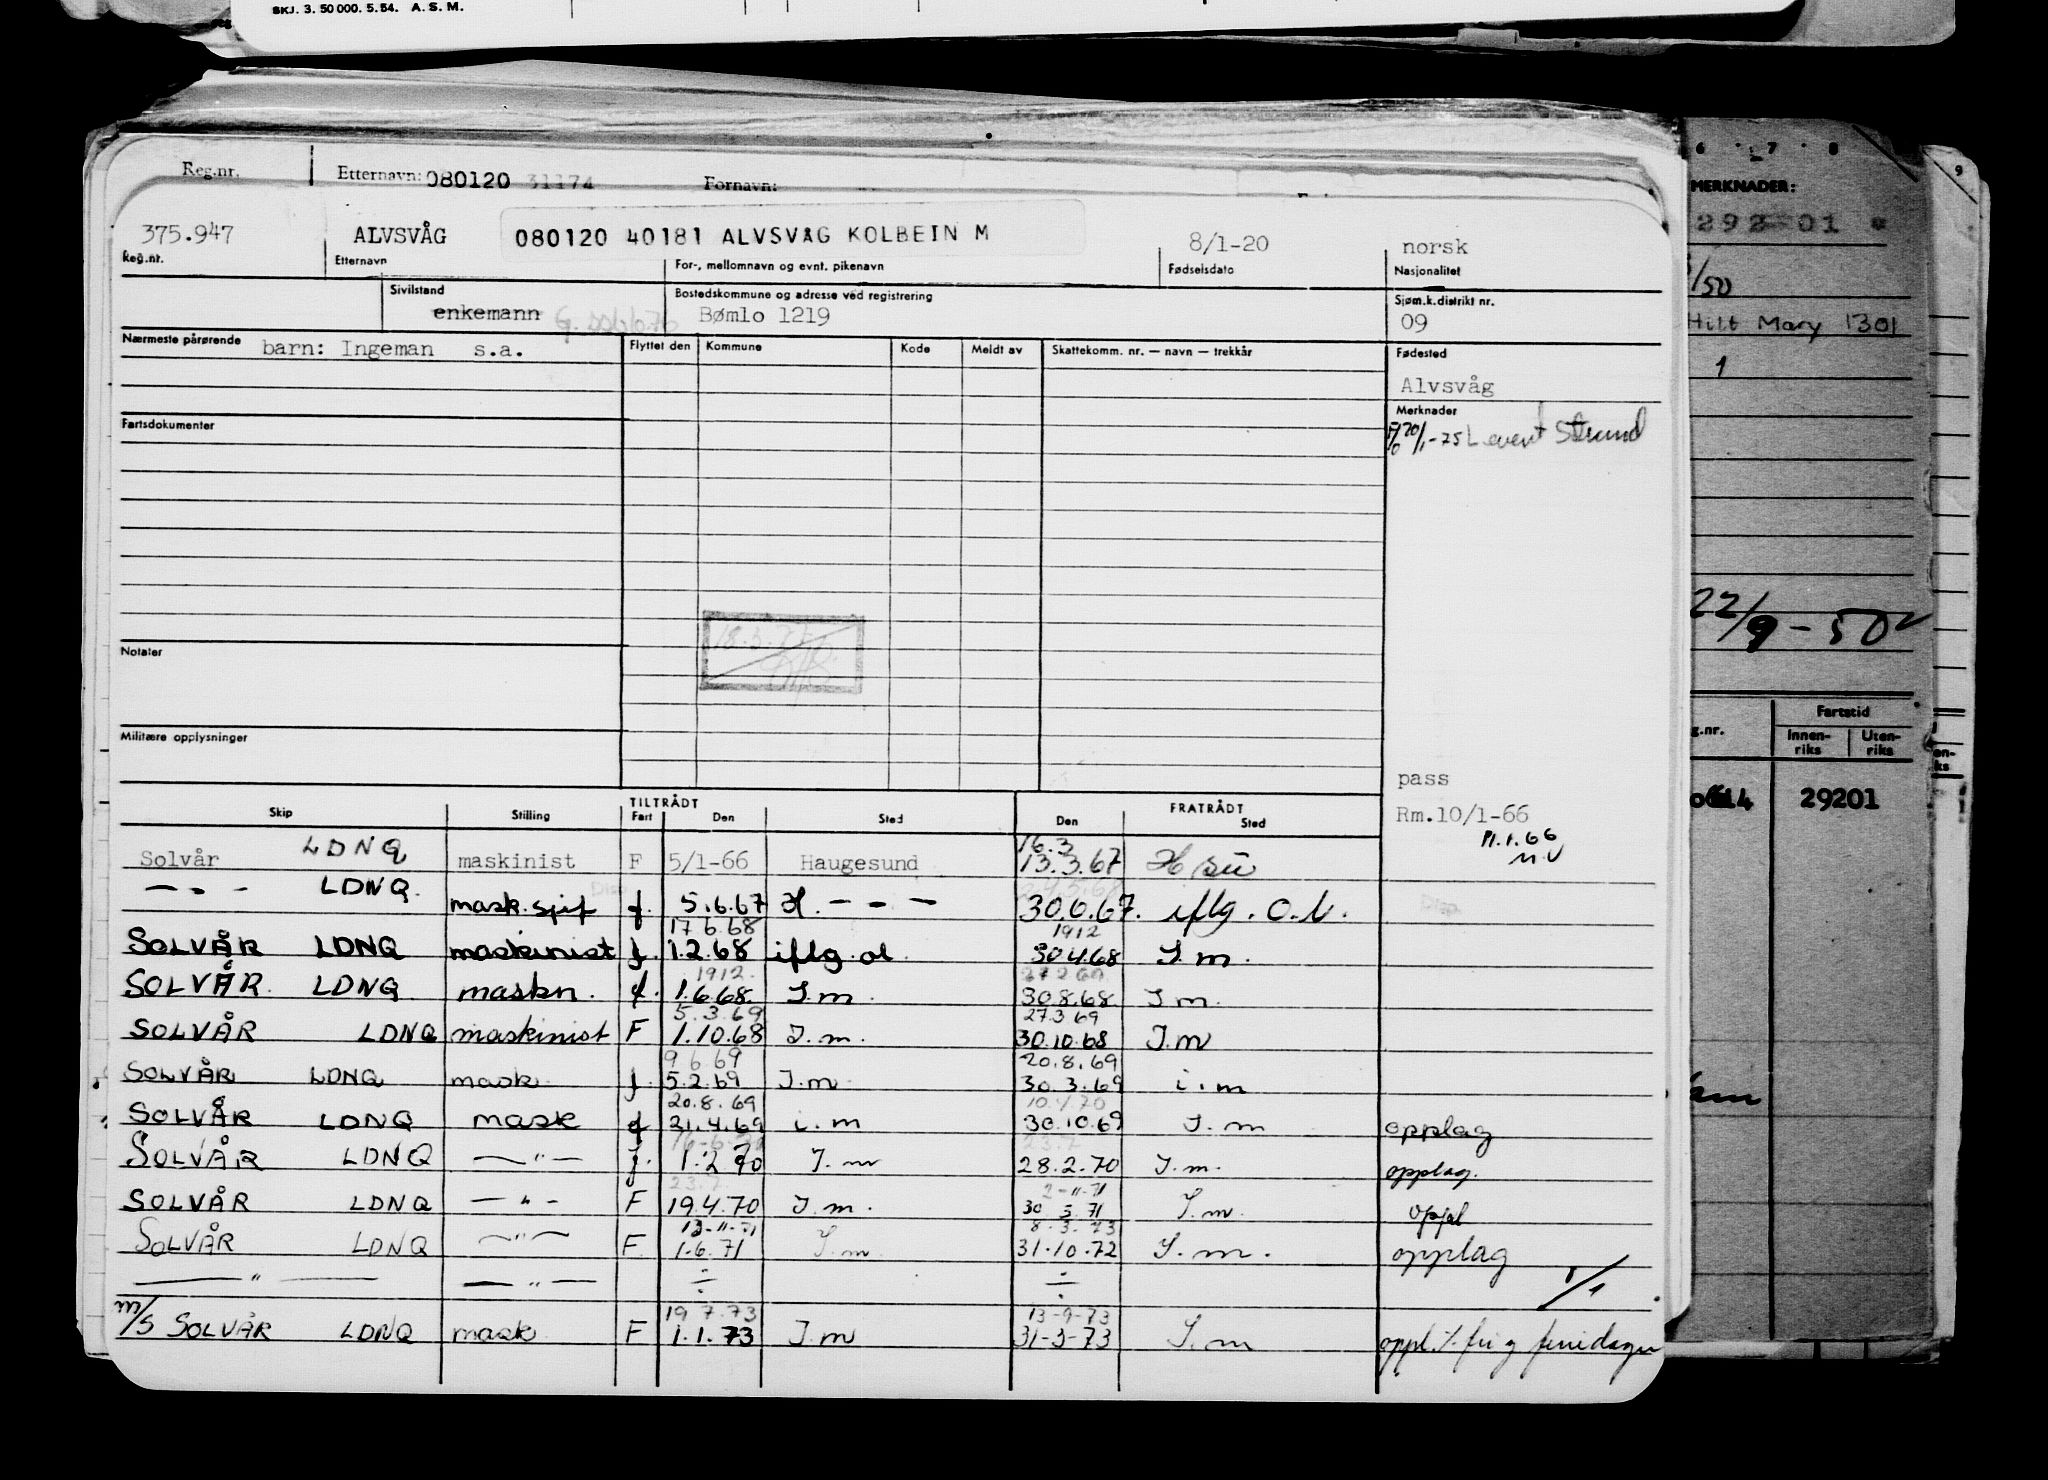 SKJ. 3. 50 000. 5. 54. A. S. M.
Reg.nr. Etternavn: 080120 31174 Fornavn:
375.947 ALVSVÅG 080120 40181 ALVSVÅG KOLBEIN M 8/1-20 norsk
Reg.nr. Etternavn For-, mellomnavn og evnt. pikenavn Fødselsdato Nasjonalitet
Sivilstand Bostedskommune og adresse ved registrering Sjøm.k.distrikt nr.
enkemann Bømlo 1219 09
Nærmeste pårørende barn: Ingeman s.a. Flyttet den Kommune Kode Meldt av Skattekomm. nr. — navn — trekkår Fødested
Alvsvåg
Fartsdokumenter Merknader
20/1-75 Levert Strund
18.3.71
Notater
Militære opplysninger
pass
Rm.10/1-66
11.1.66
M.V
TILTRÅDT FRATRÅDT
Skip Stilling Fart Den Sted Den Sted
16.3
Solvår LDNQ maskinist F 5/1-66 Haugesund 13.3.67 H su
— - - LDNQ. mask. spif f. 5.6.67 H. - - - 30.6.67. iflg. O.l.
17 6.68 1912
SOLVÅR LDNQ maskinist f. 1.2.68 iflg. ol. 30.4.68 I.m.
1912. 27 2 69
SOLVÅR. LDNQ maskn. f. 1.6.68. I.m. 30.8.68 I m.
5.3.69 27.3 69
SOLVÅR LDNQ maskinist F 1.10.68 I.m. 30.10.68 I.m
9 6 69 20.8.69
SOLVÅR LDNQ mask. f. 5.2.69 I.m. 30.3.69 i.m
20.8.69 10.4.70
SOLVÅR LDNQ mask f 21.4.69 i.m 30.10.69 I.m opplag
23.7
SOLVÅR LDNQ — " — f. 1.2 70 I.m 28.2.70 I.m. opplag.
23.7 2-11-71
SOLVÅR LDNQ — " - F 19.4.70 I.m. 30.3.71 I.m. oppl
13-11-71 8.3.73
SOLVÅR LDNQ — " — F. 1.6.71 I.m. 31.10.72 I.m. opplag
— " — — " — ÷ ÷ 1/1
19 7.73 13-9-73
m/s SOLVÅR LDNQ mask F 1.1.73 I.m 31-3-73 I.m oppl. % fri og feriedager
6 7 8
9
MERKNADER:
292 01
/50
Hilt Mary 1301
1
22/9-50
g.nr. Fartstid
Innen-riks Uten-riks
29201